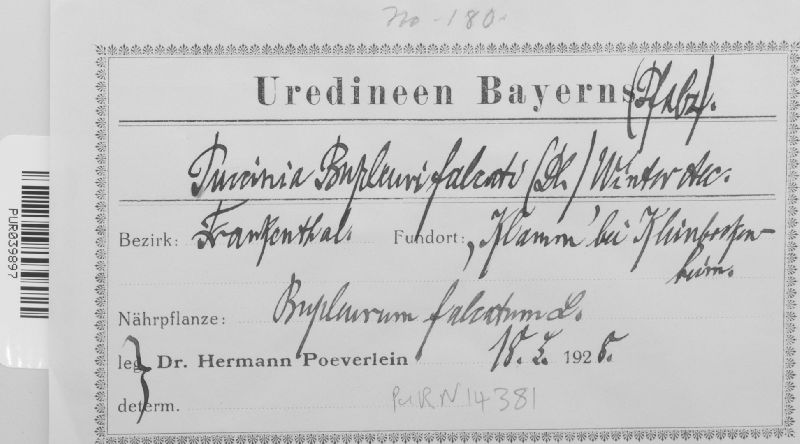 No - 180.
Uredineen Bayerns (Pfalz).
Puccinia Bupleuri falcati (DC.) Winter
Bezirk: Frankenthal. Fundort: „Klamm" bei Kleinbocken-
heim.
Nährpflanze: Bupleurum falcatum L.
leg. Dr. Hermann Poeverlein 18. 5. 1928.
determ.
PUR N 14381
PUR039897